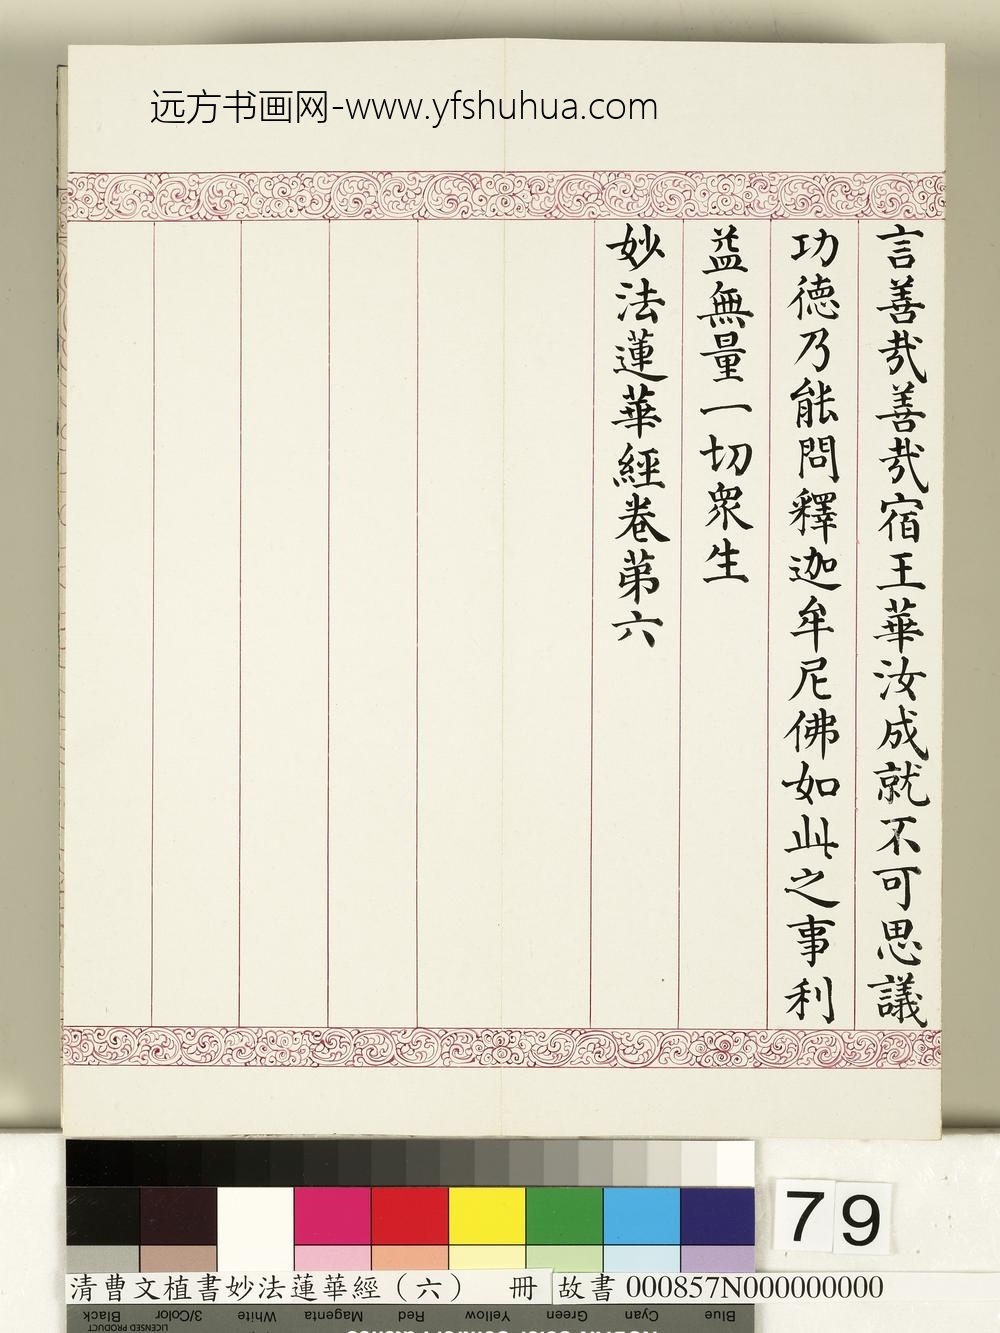 远方书画网-www.yfshuhua.com
言善哉善哉宿王華汝成就不可思議
功徳乃能問釋迦牟尼佛如此之事利
益無量一切衆生
妙法蓮華經卷第六
79
清曹文植書妙法蓮華經（六） 冊 故書 000857N000000000
Blue Cyan Green Yellow Red Magenta White 3/Color Black
LICENSED PRODUCT